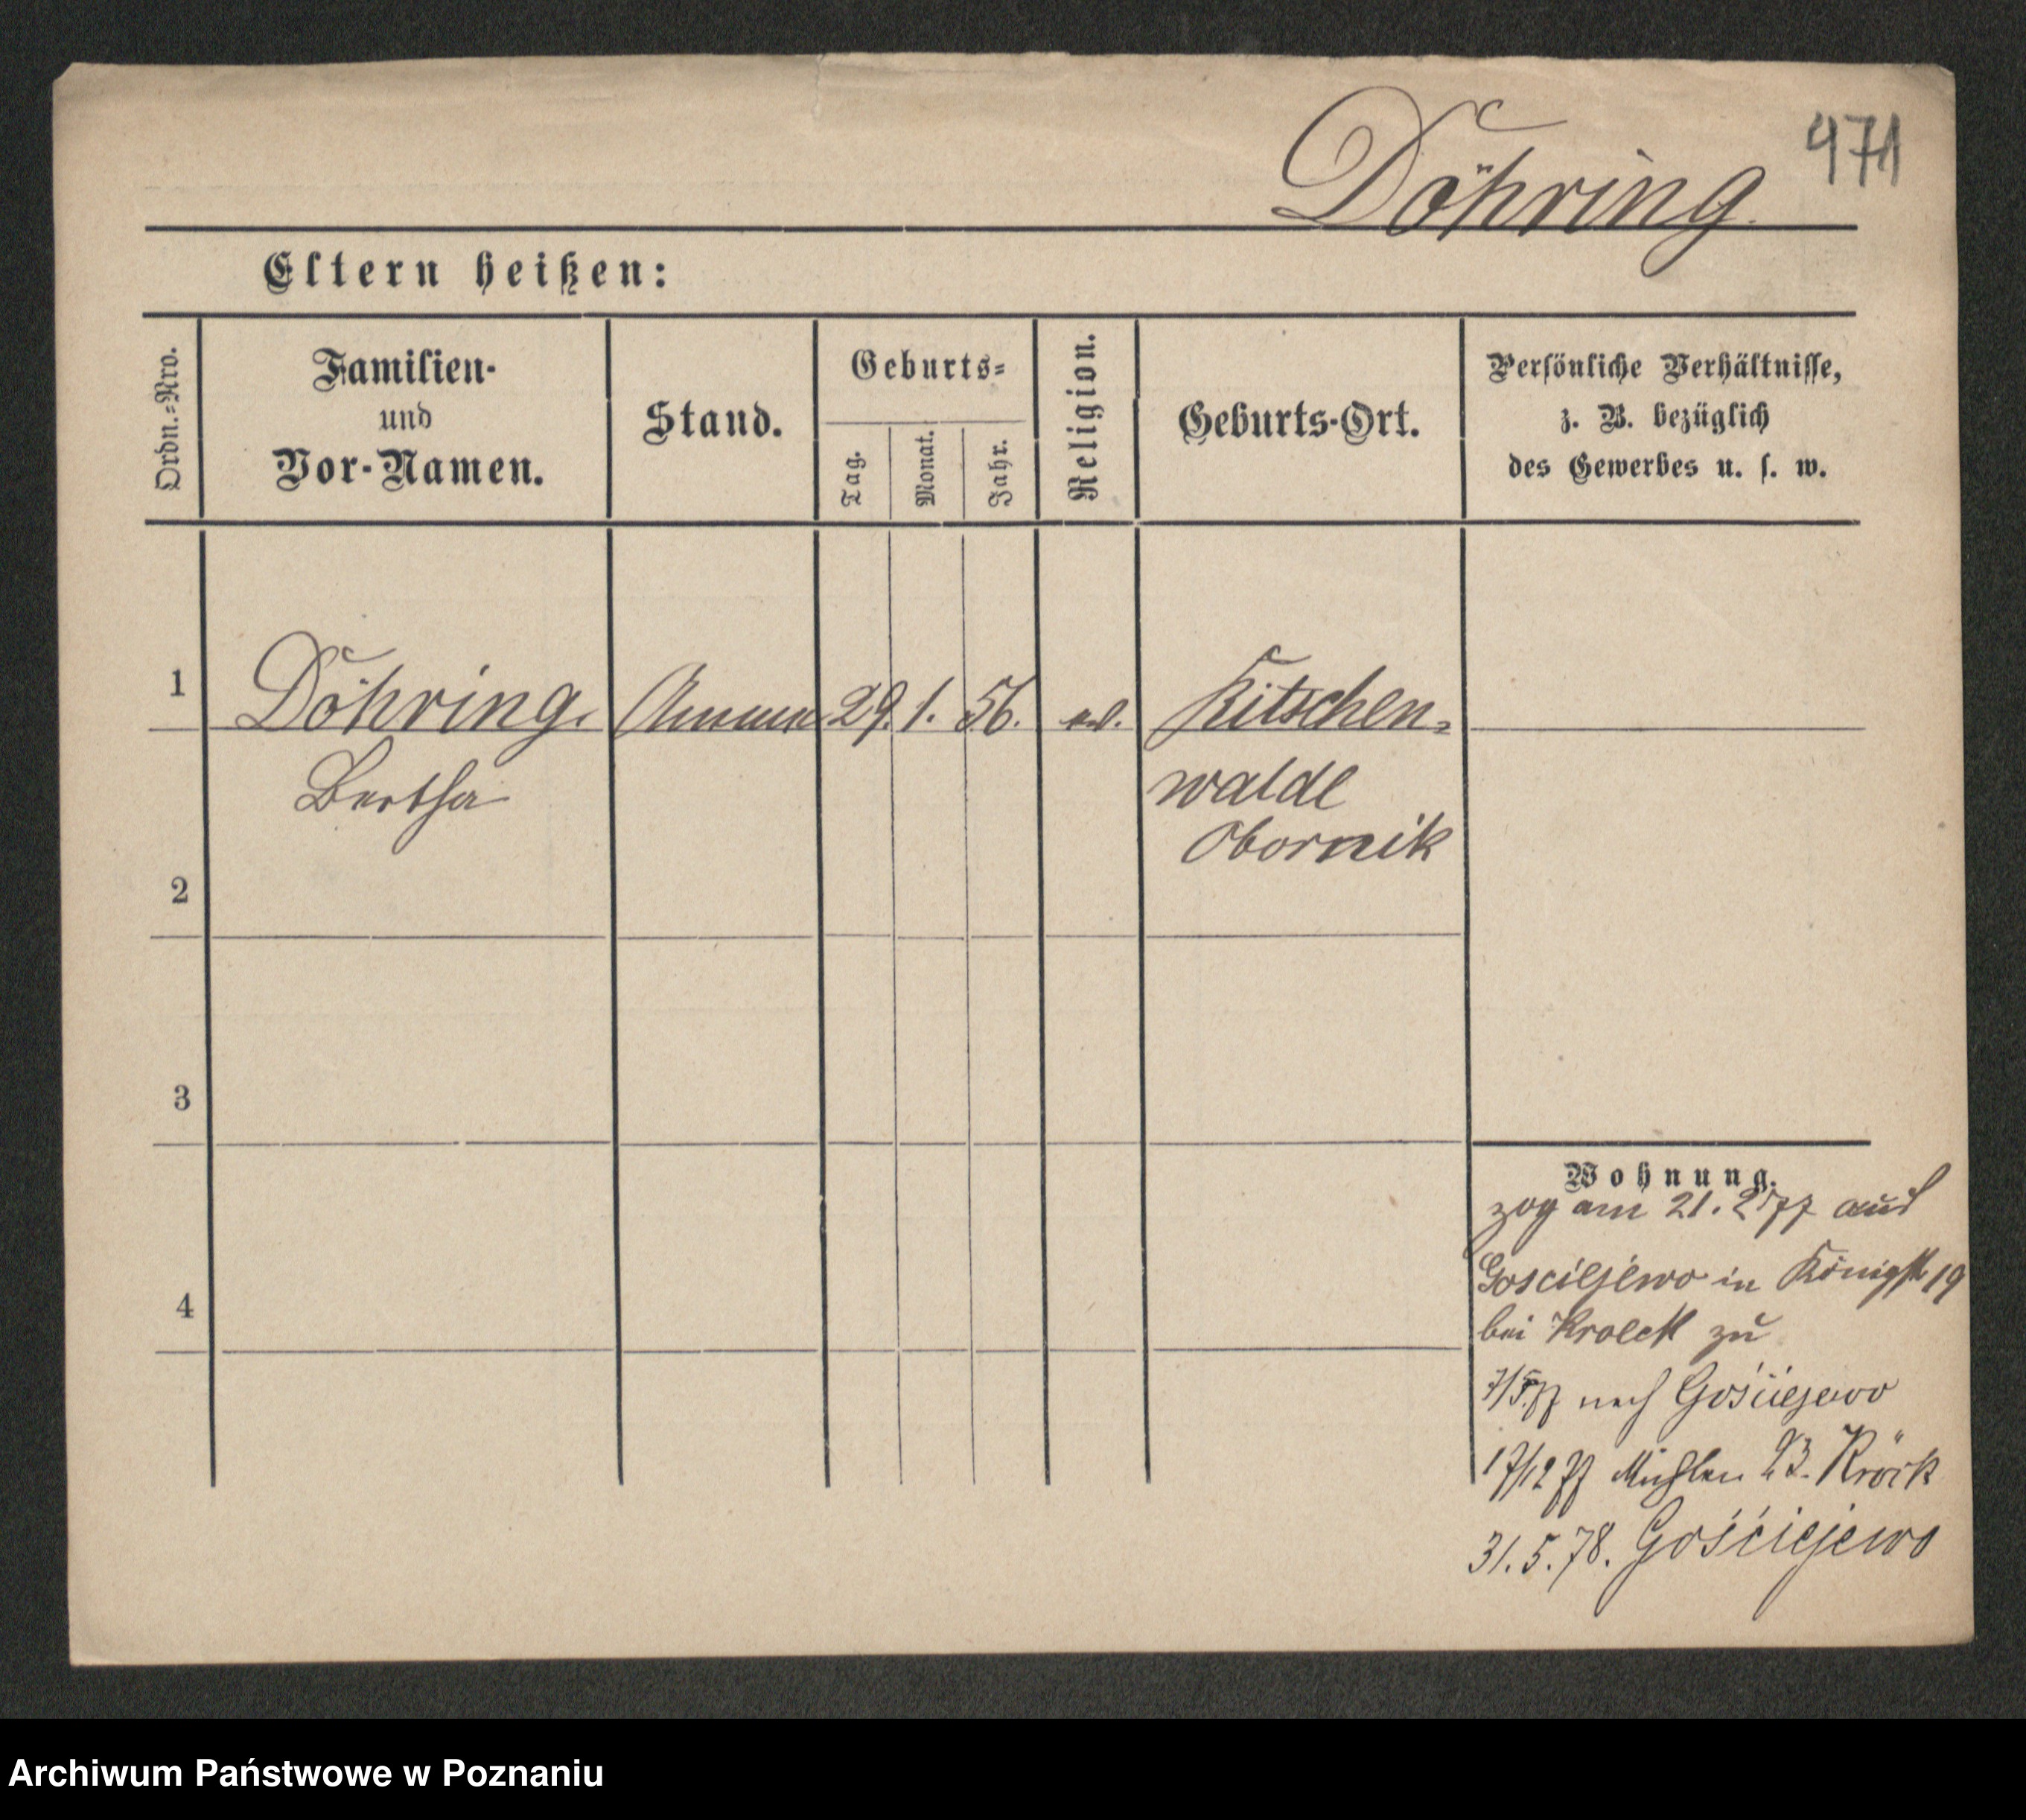 471
Döhring
Eltern heißen:
Ordn.=Nro.
Familien-
und
Vor-Namen.
Stand.
Geburts=
Tag.
Monat.
Jahr.
Religion.
Geburts-Ort.
Persönliche Verhältnisse,
z. B. bezüglich
des Gewerbes u. s. w.
1 Döhring. Amme 29. 1. 56. ev. Kitschen=
Bertha walde
Obornik
2
3
4
Wohnung.
zog am 21. 2 77 aus
Gosciejewo in Königst 19
bei Krolckl zu
7/5.77 nach Gościejewo
17/12 77 Mühlen 23. Kröck
31. 5. 78. Gościejewo
Archiwum Państwowe w Poznaniu